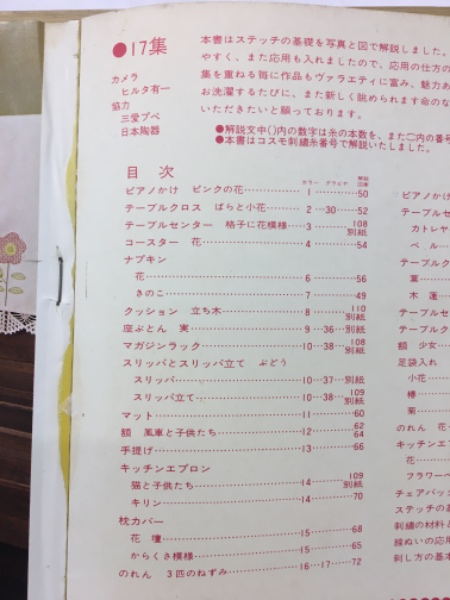 ●17集
カメラ
ヒルタ有一
協力
三愛プペ
日本陶器
本書はステッチの基礎を写真と図で解説しました。
やすく、また応用も入れましたので、応用の仕方の
集を重ねる毎に作品もヴァラエティに富み、魅力あ
お洗濯するたびに、また新しく眺められます命のな
いただきたいと願っております。
●解説文中()内の数字は糸の本数を、また○内の番号
●本書はコスモ刺繍糸番号で解説いたしました。
目次
カラー グラビヤ 解説図案
ピアノかけ ピンクの花…………1………50
テーブルクロス ばらと小花………2…30……52
テーブルセンター 格子に花模様……3………108別紙
コースター 花…………4………54
ナプキン
花…………6………56
きのこ…………7………49
クッション 立ち木…………8………110別紙
座ぶとん 実…………9…36…別紙
マガジンラック…………10…38…108別紙
スリッパとスリッパ立て ぶどう
スリッパ…………10…37…別紙
スリッパ立て…………10…38…109別紙
マット…………11………60
額 風車と子供たち…………12………62 64
手提げ…………13………66
キッチンエプロン
猫と子供たち…………14………109別紙
キリン…………14………70
枕カバー
花壇…………15………68
からくさ模様…………15………65
のれん 3匹のねずみ…………16…17……72
ピアノかけ
テーブルセ
カトレヤ
ベル…
テーブルク
葉…
木蓮…
テーブルセ
テーブルク
額 少女…
足袋入れ
小花…
椿…
菊…
のれん 花
キッチンエ
花…
フラワーベ
チェアバッ
ステッチの基
刺繍の材料と
線ぬいの応用
刺し方の基本